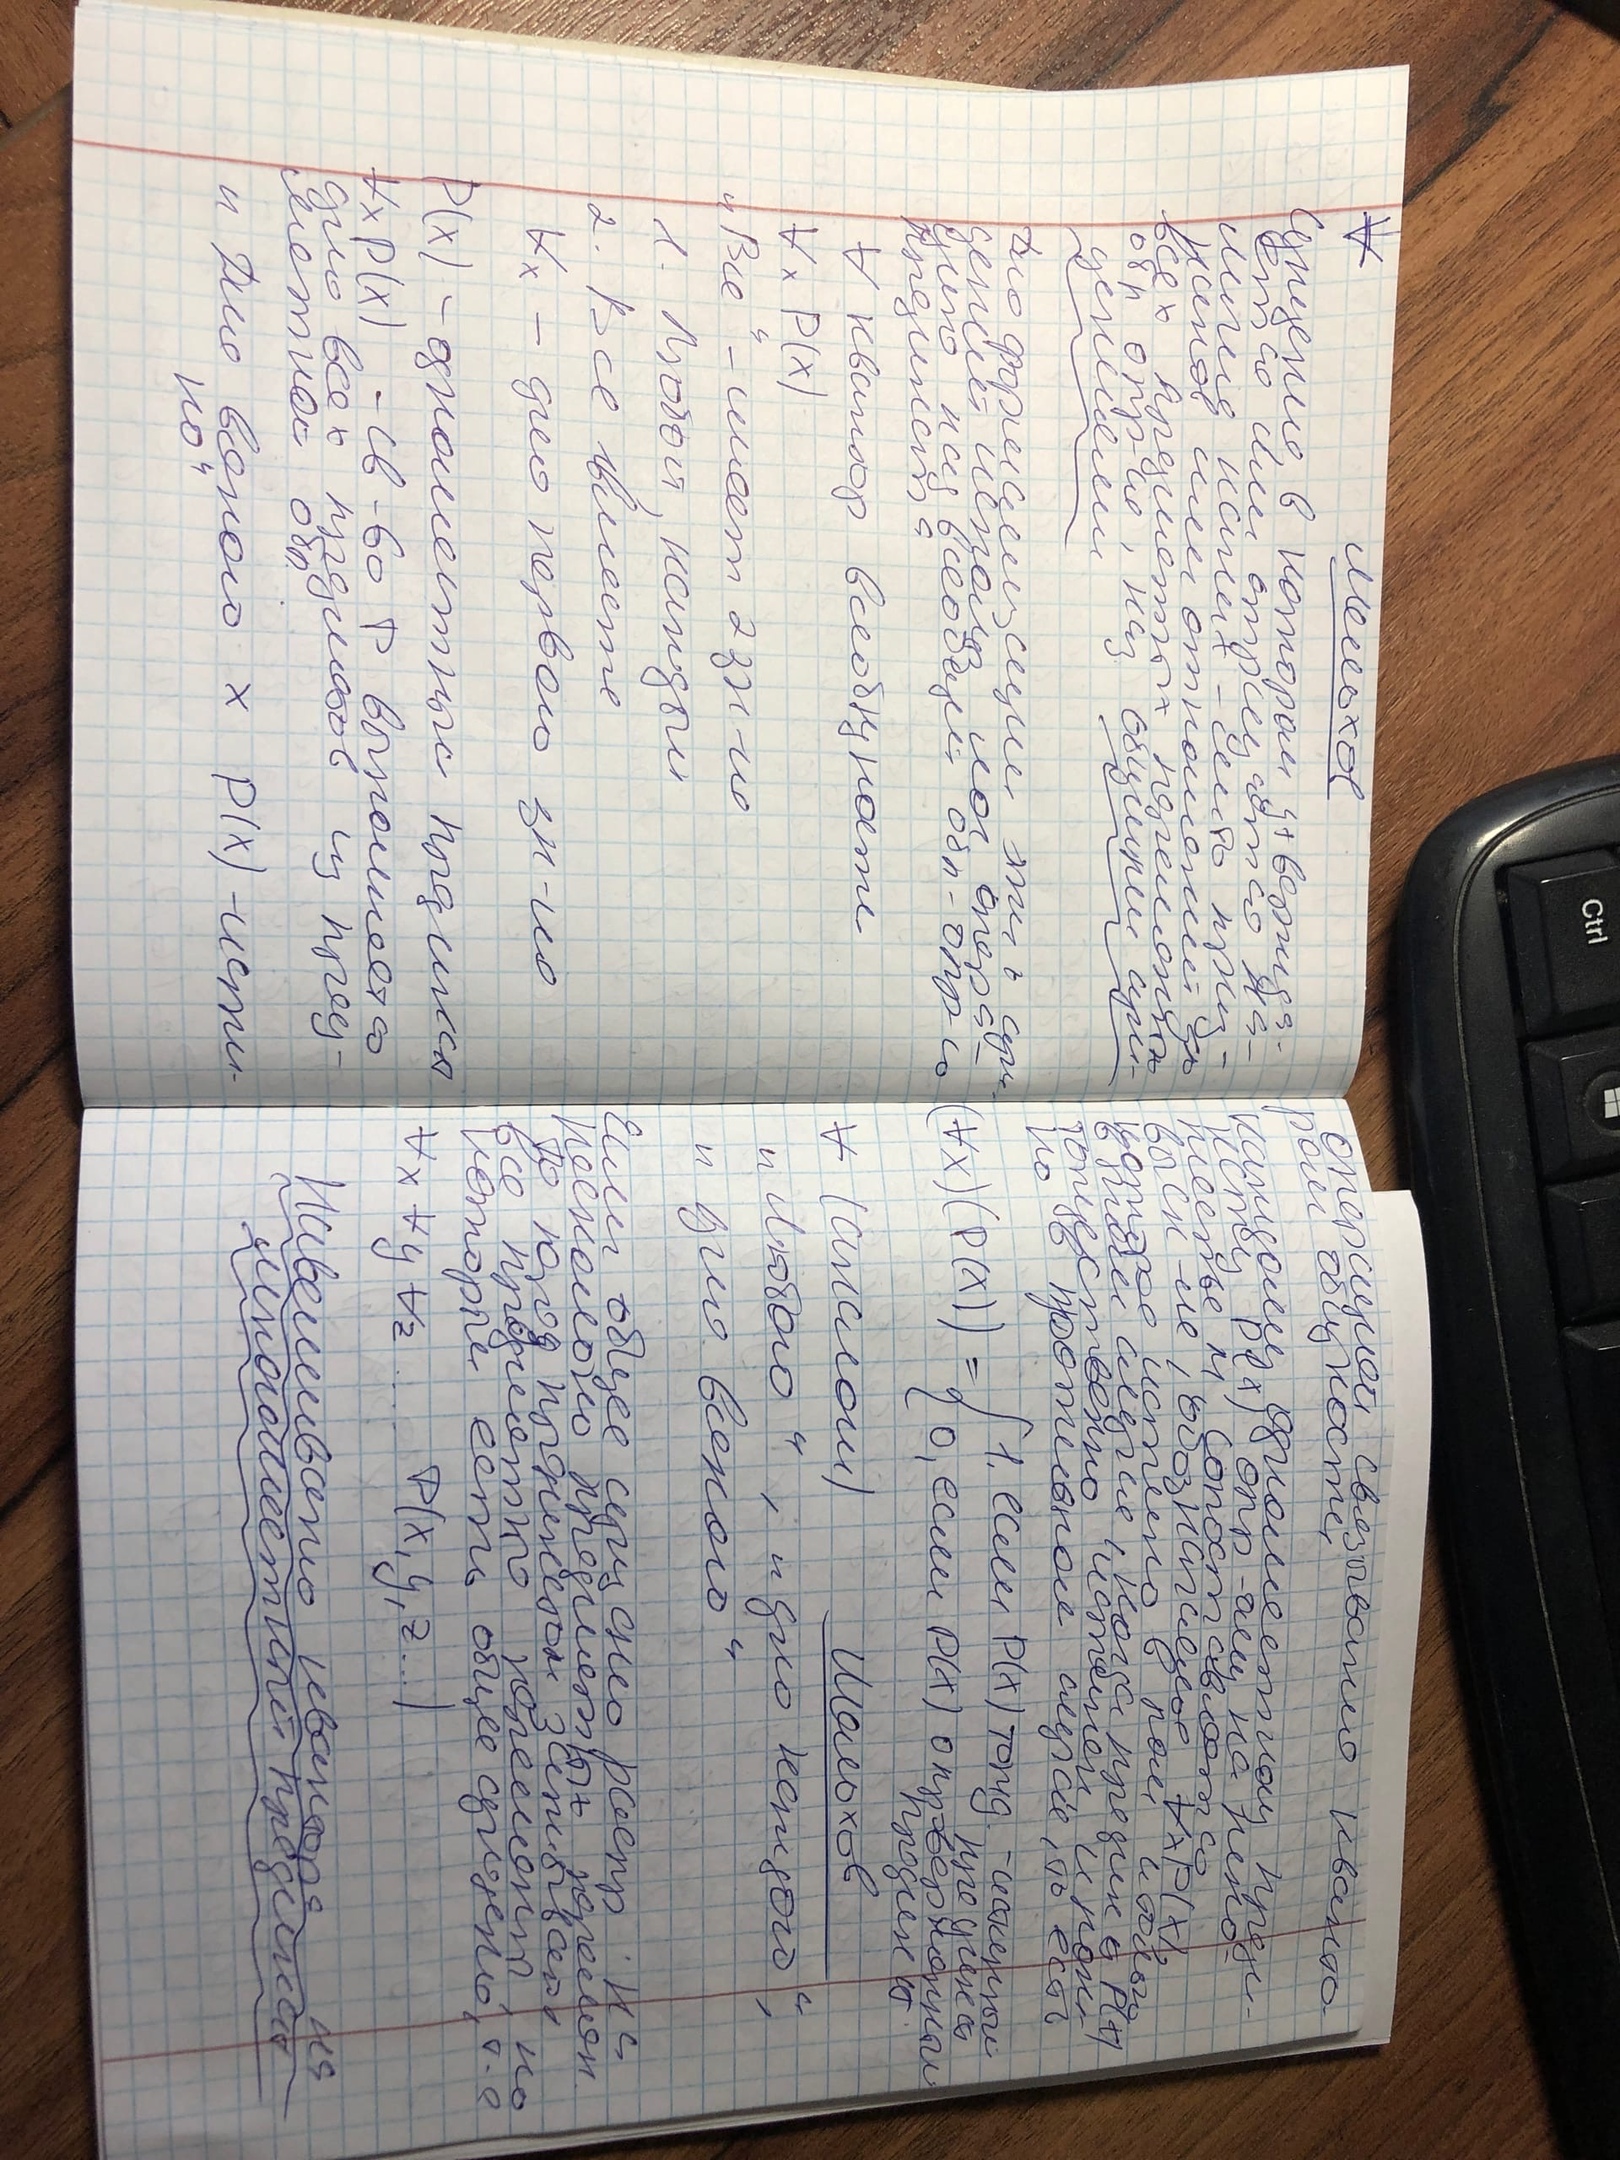 Ctrl
∀ Мелохов
Суждение, в котором утвержда-
ется или отрицается на-
личие каких-либо приз-
наков или отношений для
всех предметных переменных
обл опр-ия, наз общими суж-
дениями
Для формализации этих суж-
дений использ лог опера-
цию наз всеобщей обл-опр-ия
предиката
∀ квантор всеобщности
∀x P(x)
"Все" - имеет 2 зн-ия
1. Любой, каждый
2. Все вместе
∀x - для первого зн-ия
P(x) - одноместный предикат
∀x P(x) - св-во P выполняется
для всех предметов из пред-
метной обл.
"Для всякого x P(x) - исти-
но"
операцией связывания кванто-
ром общности
каждому одноместному преди-
кату P(x) опр-ому на мно-
жестве M, сопоставляется
выск-ие, обозначаемое ∀x P(x),
которое истино в том и только
в том случае, когда предикат P(x)
тождественно истинен, и лож-
но в противном случае, то есть
(∀x)(P(x)) = { 1, если P(x) тожд.-истинный
предикат
0, если P(x) опровержимый
предикат
∀ (аналоги) Молохов
"Любого", "для каждого",
"для всякого"
Если общее суждение распр. на
несколько предметных перемен.
то перед предикатом записывается
все предметные переменные, по
которым есть общее суждение, т.е
∀x ∀y ∀z .... P(x, y, z...)
Навешивание квантора на
многоместный предикат